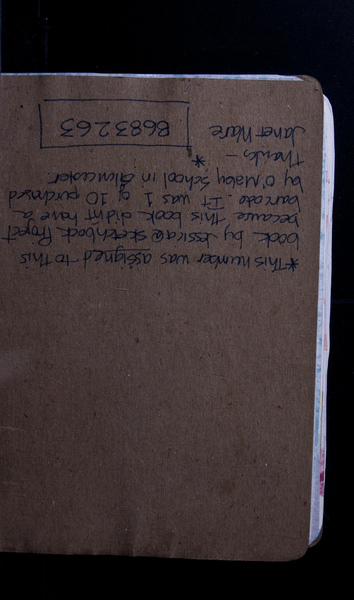 *This number was assigned to this
book by Jessica @ Sketchbook Project
because this book didn't have a
barcode. It was 1 of 10 purchased
by O'Maley School in Gloucester.
Thanks – *
Janet Ware
8683263